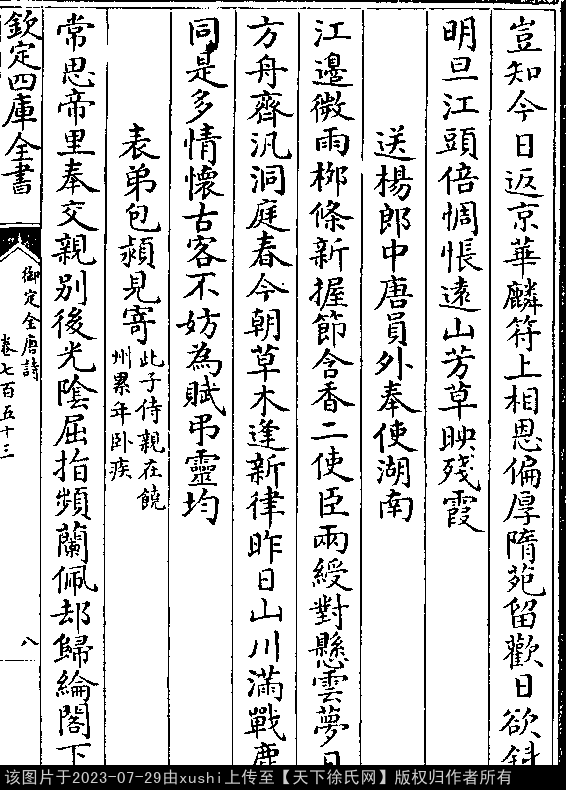 豈知今日返京華麟符上相恩偏厚隋苑留歡日欲斜
明旦江頭倍惆悵遠山芳草映殘霞
送楊郎中唐員外奉使湖南
江邊微雨柳條新握節含香二使臣兩綬對懸雲夢日
方舟齊汎洞庭春今朝草木逢新律昨日山川滿戰塵
同是多情懷古客不妨為賦弔靈均
表弟包潁見寄
此子侍親在饒
州累年卧疾
常思帝里奉交親別後光陰屈指頻蘭佩却歸綸閣下
欽定四庫全書
御定全唐詩
卷七百五十三
八
该图片于2023-07-29由xushi上传至【天下徐氏网】版权归作者所有